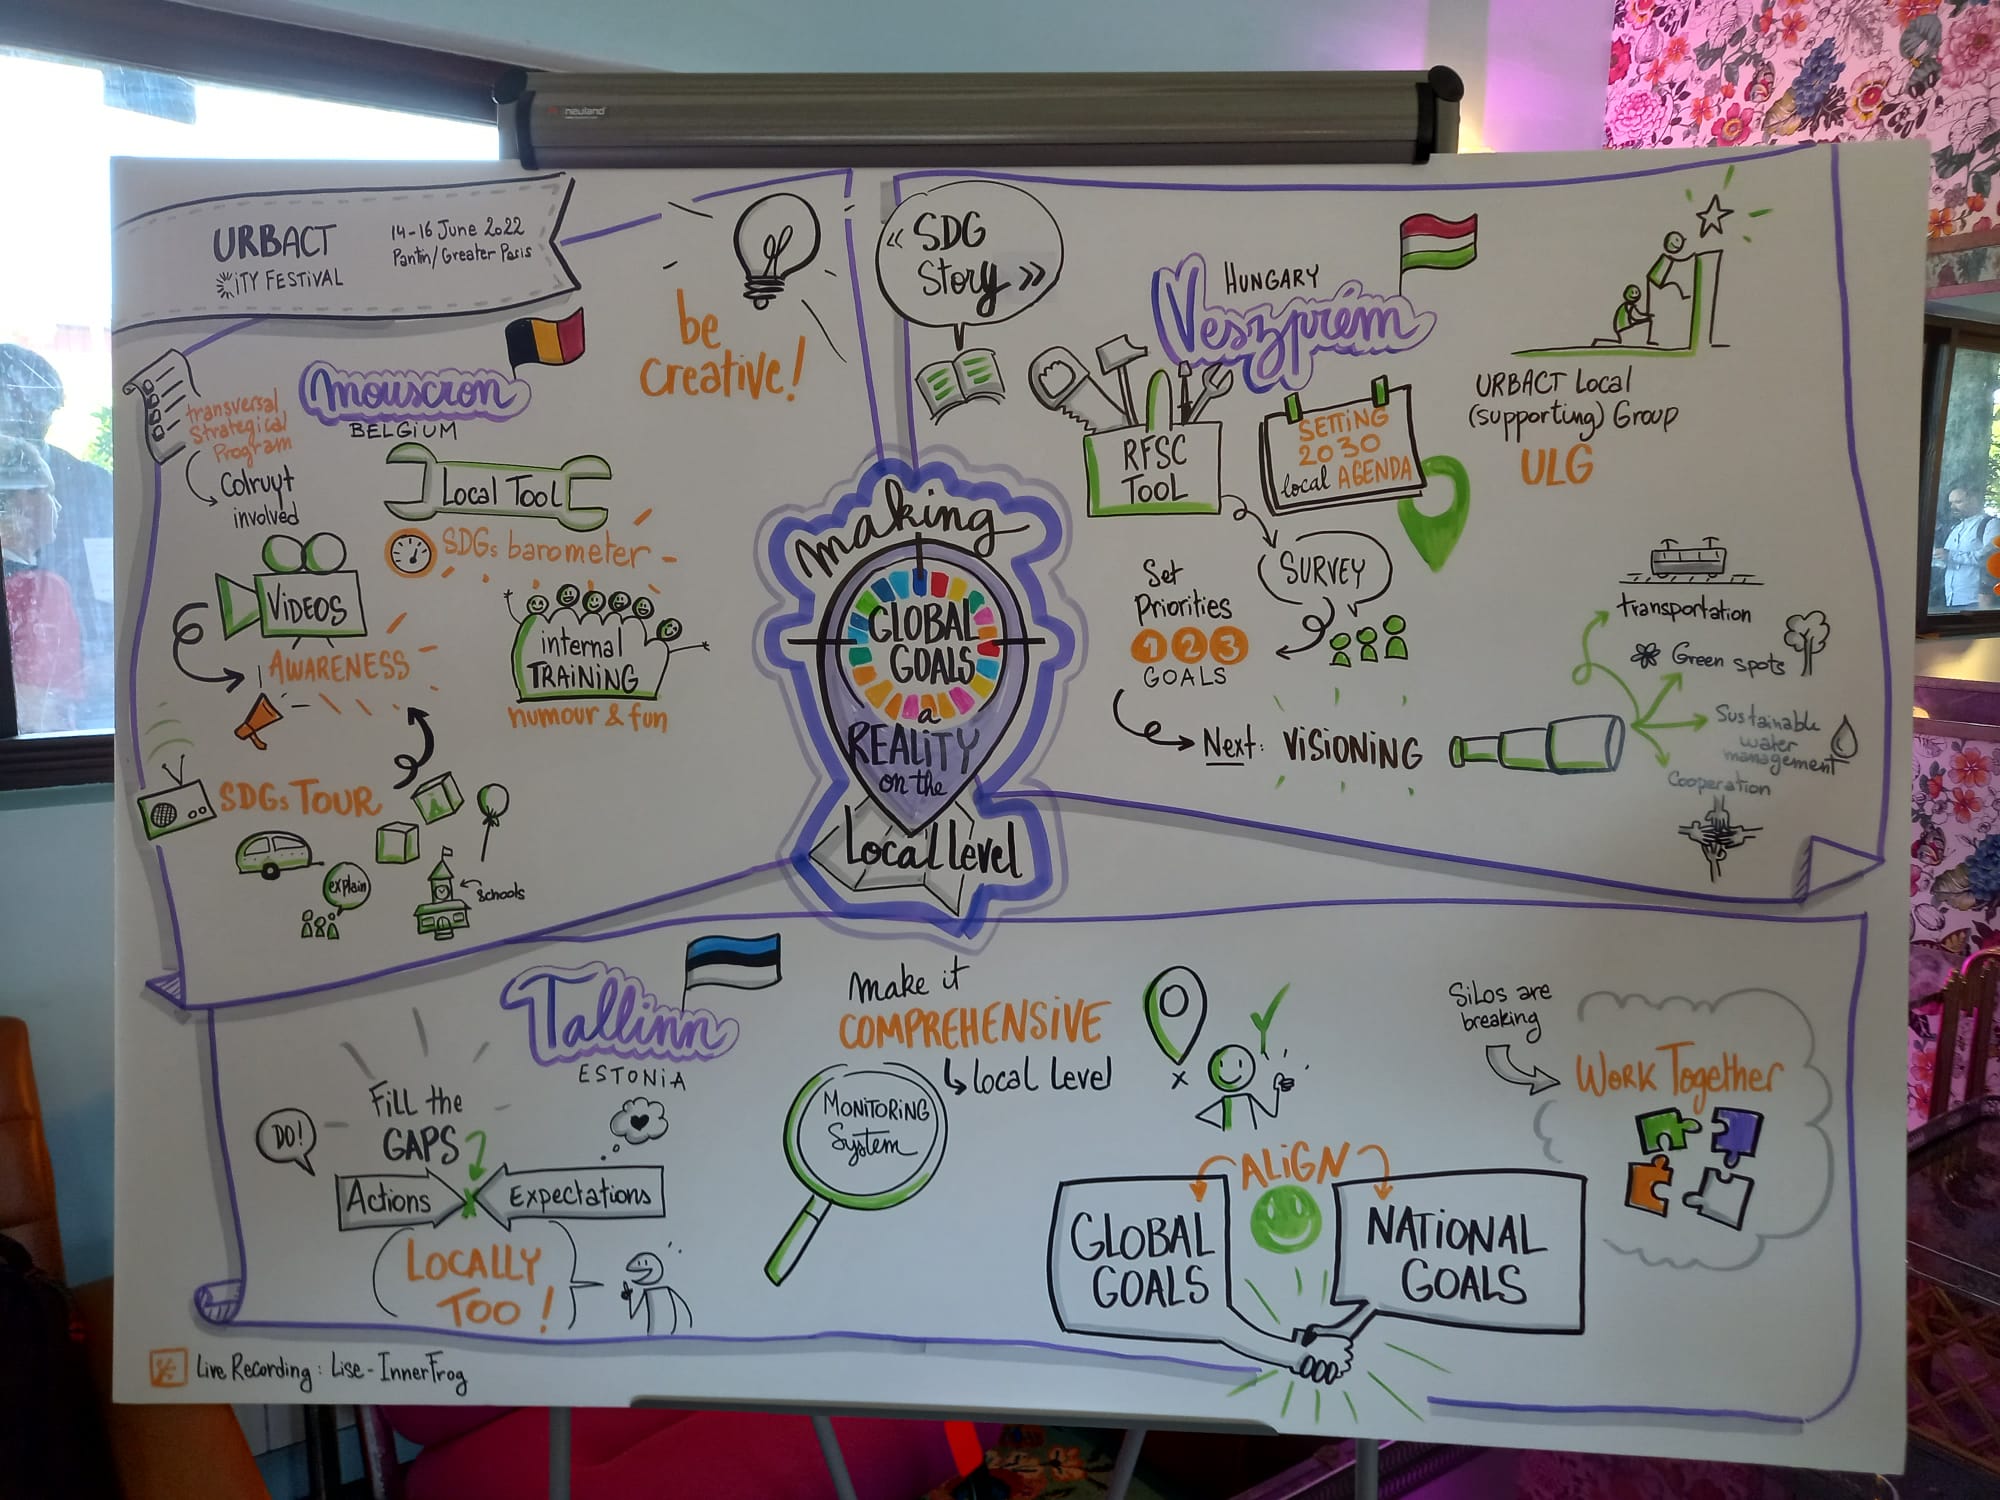 neuland
URBACT
CITY FESTIVAL
14-16 June 2022
Pantin/Greater Paris
be
creative!
Mouscron
BELGIUM
transversal
Strategical
Program
Colruyt
involved
Local Tool
SDGs barometer
VIDEOS
AWARENESS
internal
TRAINING
humour & fun
SDGs TOUR
explain
schools
« SDG
Story »
HUNGARY
Veszprém
RFSC
TOOL
SETTING
2030
local AGENDA
URBACT Local
(supporting) Group
ULG
SURVEY
Set
Priorities
1 2 3
GOALS
Next: VISIONING
transportation
Green spots
Sustainable
water
management
Cooperation
Making
GLOBAL
GOALS
a
REALITY
on the
Local level
Tallinn
ESTONIA
DO!
Fill the
GAPS
Actions
Expectations
LOCALLY
TOO!
make it
COMPREHENSIVE
local level
MONITORING
System
ALIGN
GLOBAL
GOALS
NATIONAL
GOALS
Silos are
breaking
WORK Together
Live Recording: Lise-InnerFrog